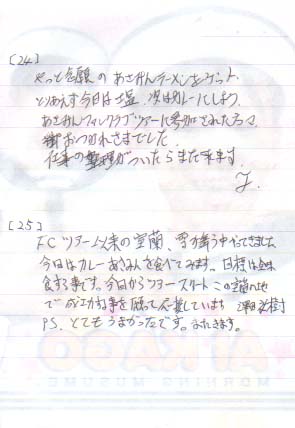 [24]
やっと念願の あさみんラーメンをゲット
とりあえず今日は塩、次はカレーにしよう。
あさみファンクラブツアーに参加された方々
おつかれさまでした。
仕事の整理がついたらまた来ます。
J.
[25]
F.C ツアー以来の室蘭、雪が舞う中やってきました
今日はカレーあさみんを食べてみます。目標は全味
食する事です。今日からツアースタート この道
で 成功する事を願って応援しています
P.S. とても うまかったです。またきます。
AI KAGO
MORNING MUSUME